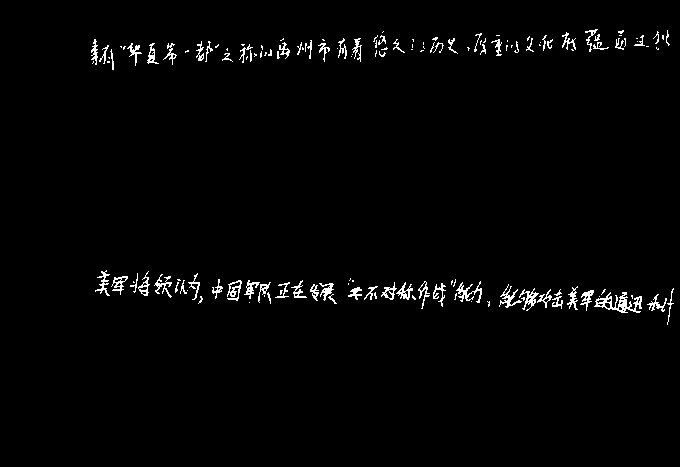 素有"华夏第一都"之称的禹州市有着悠久的历史、厚重的文化
美军将领认为,中国军队正在发展"不对称作战"能力,能够攻击美军的通迅和